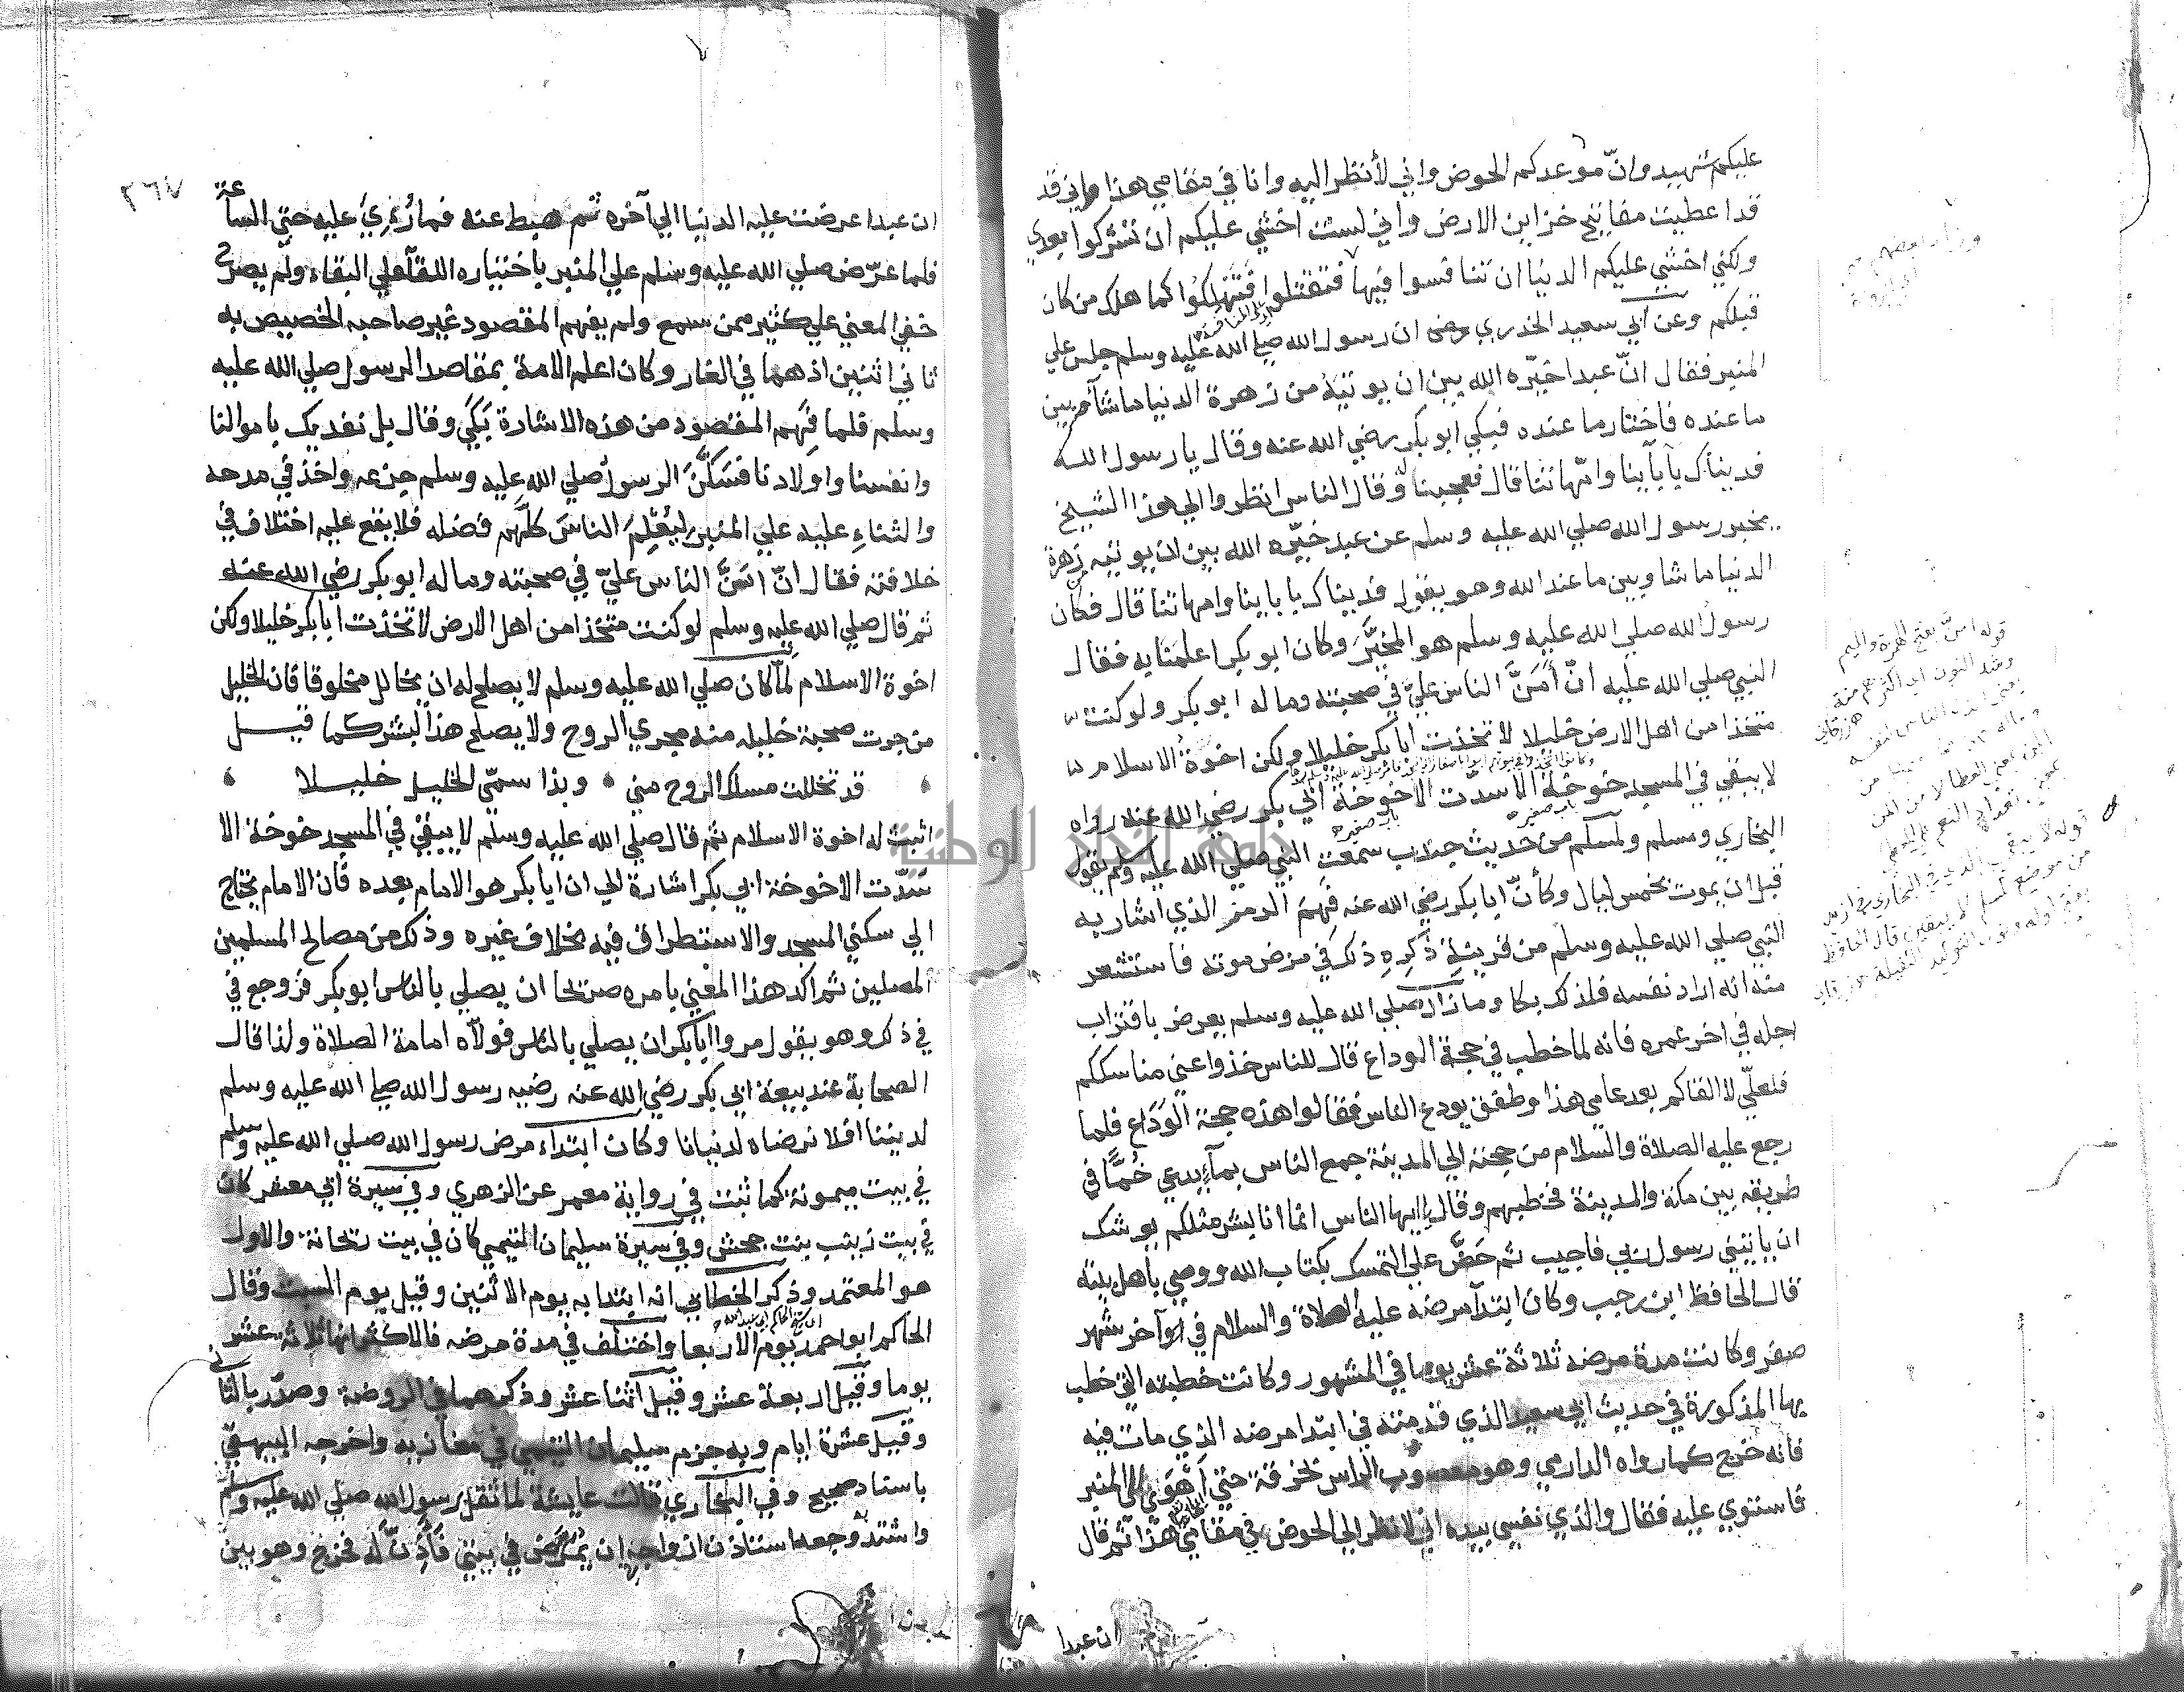 عليكم شهيد وانّ موعدكم الحوض واني لأنظر اليه وانا في مقامي هذا واني قد
قد اعطيت مفاتيح خزاين الارض واني لست اخشي عليكم ان تشركوا بعدي
ولكني اخشي عليكم الدنيا ان تنافسوا فيها فتقتلوا فتهلكوا كما هلك من كان
قبلكم وعن ابي سعيد الخدري رضى ان رسول الله صلي الله عليه وسلم جلس علي
المنبر فقال انّ عبدا خيّره الله بين ان يوتيه من زهرة الدنيا ما شآء وبين
ما عنده فاختار ما عنده فبكي ابو بكر رضي الله عنه وقال يا رسول الله
فديناك بآبآينا وامّهاتنا قال فعجبنا له وقال الناس انظروا الي هذا الشيخ
يخبر رسول الله صلي الله عليه وسلم عن عبد خيّره الله بين ان يوتيه زهرة
الدنيا ما شا وبين ما عند الله وهو يقول فديناك بابآينا وامهاتنا قال فكان
رسول الله صلي الله عليه وسلم هو المخيَّر وكان ابو بكر اعلمنا به فقال
النبي صلي الله عليه انّ أمَنَّ الناس عليّ في صحبته وماله ابو بكر ولو كنت
متخذا من اهل الارض خليلا لاتخذت أبا بكر خليلا ولكن اخوة الاسلام
لا يبقي في المسجد خوخة الا سدّت الا خوخة أبي بكر رضي الله عنه رواه
باب صغير
باب صغيره
البخاري ومسلم ولمسلم من حديث جندب سمعت النبي صلي الله عليه وسلم يقول
قبل ان يموت بخمس ليال وكأنّ ابا بكر رضي الله عنه فهم الرمز الذي اشار به
النبي صلي الله عليه وسلم من قرينة ذكره ذلك في مرض موته فاستشعر
منه انه اراد نفسه فلذلك بكا وما زال صلي الله عليه وسلم يعرض باقتراب
اجله في اخر عمره فانه لما خطب في حجة الوداع قال للناس خذوا عني مناسككم
فلعلّي لا القاكم بعد عامي هذا وطفق يودع الناس فقالوا هذه حجة الوَدَاع فلما
رجع عليه الصلاة والسلام من حجته الي المدينة جمع الناس بمآء يدعي خُمًّا في
طريقه بين مكة والمدينة فخطبهم وقال يا ايها الناس انما انا بشر مثلكم يوشك
ان ياتيني رسول ربي فاجيب ثم حَضَّ علي التمسك بكتاب الله ووصي باهل بيته
قال الحافظ ابن رجب وكان ابتدآ مرضه عليه الصلاة والسلام في اوآخر شهر
صفر وكانت مدة مرضه ثلاثة عشر يوما في المشهور وكانت خطبته التي خطب
بها المذكورة في حديث ابي سعيد الذي قدمته في ابتدا مرضه الذي مات فيه
فانه خرج كما رواه الدارمي وهو معصوب الراس بخرقة حتي أهوَي الي المنبر
فاستوي عليه فقال والذي نفسي بيده اني لانظر الي الحوض في مقامي هذا ثم قال
ان عبدا
قوله امنّ بفتح الهمزة والميم
وشد النون اي اكثرهم منة
٢٦٧
ان عبدا عرضت عليه الدنيا الي آخره ثم هبط عنه فما رُئِيَ عليه حتي الساعة
فلما عرّض صلي الله عليه وسلم علي المنبر باختياره اللقآ علي البقاء ولم يصرح
خفي المعني علي كثير ممن سمع ولم يفهم المقصود غير صاحبه الخصيص به
ثاني اثنين اذ هما في الغار وكان اعلم الامة بمقاصد الرسول صلي الله عليه
وسلم فلما فهم المقصود من هذه الاشارة بَكَي وقال بل نفديك باموالنا
وانفسنا واولادنا فسَكَّنَ الرسول صلي الله عليه وسلم جزعه واخذ في مدحه
والثناء عليه علي المنبر ليُعْلِمَ الناسَ كلَّهم فضله فلا يقع عليه اختلاف في
خلافته فقال انّ امَنَّ الناس عليّ في صحبته وماله ابو بكر رضي الله عنه
ثم قال صلي الله عليه وسلم لو كنت متخذا من اهل الارض لاتخذت ابا بكر خليلا ولكن
اخوة الاسلام لمّا كان صلي الله عليه وسلم لا يصلح له ان يخالل مخلوقا فان الخليل
من جرت صحبة خليله منه مجري الروح ولا يصلح هذا لبشر كما قيل
قد تخللت مسلك الروح مني وبذا سمّي الخليل خليلا
اثبت له اخوة الاسلام ثم قال صلي الله عليه وسلم لا يبقي في المسجد خوخة الا
سَدّت الا خوخة ابي بكر اشارة الي ان ابا بكر هو الامام بعده فان الامام يحتاج
الي سكني المسجد والاستطراق فيه بخلاف غيره وذلك من مصالح المسلمين
المصلين ثم اكد هذا المعني بامره صريحا ان يصلي بالناس ابو بكر فروجع في
في ذلك وهو يقول مروا ابا بكر ان يصلي بالناس فولآه امامة الصلاة ولذا قال
الصحابة عند بيعة ابي بكر رضي الله عنه رضيه رسول الله صلي الله عليه وسلم
لديننا افلا نرضاه لدنيانا وكان ابتداء مرض رسول الله صلي الله عليه وسلم
في بيت ميمونة كما ثبت في رواية معمر عن الزهري وفي سيرة ابي معشر كان
في بيت زينب بنت جحش وفي سيرة سليمان التيمي كان في بيت ريحانة والاول
هو المعتمد وذكر الخطابي انه ابتدا به يوم الاثنين وقيل يوم السبت وقال
الحاكم ابو احمد يوم الاربعا واختلف في مدة مرضه فالاكثر انها ثلاثة عشر
يوما وقيل اربعة عشر وقيل اثنا عشر وذكرهما في الروضة وصدّر بالثاني
وقيل عشرة ايام وبه جزم سليمان التيمي في مغازيه واخرجه البيهقيّ
باسناد صحيح وفي البخاري قالت عايشة لما ثقل رسول الله صلي الله عليه وسلم
واشتد به وجعه استاذن ازواجه ان يُمَرَّض في بيتي فَأَذِنَّ له فخرج وهو بين
جامعة النجاح الوطنية